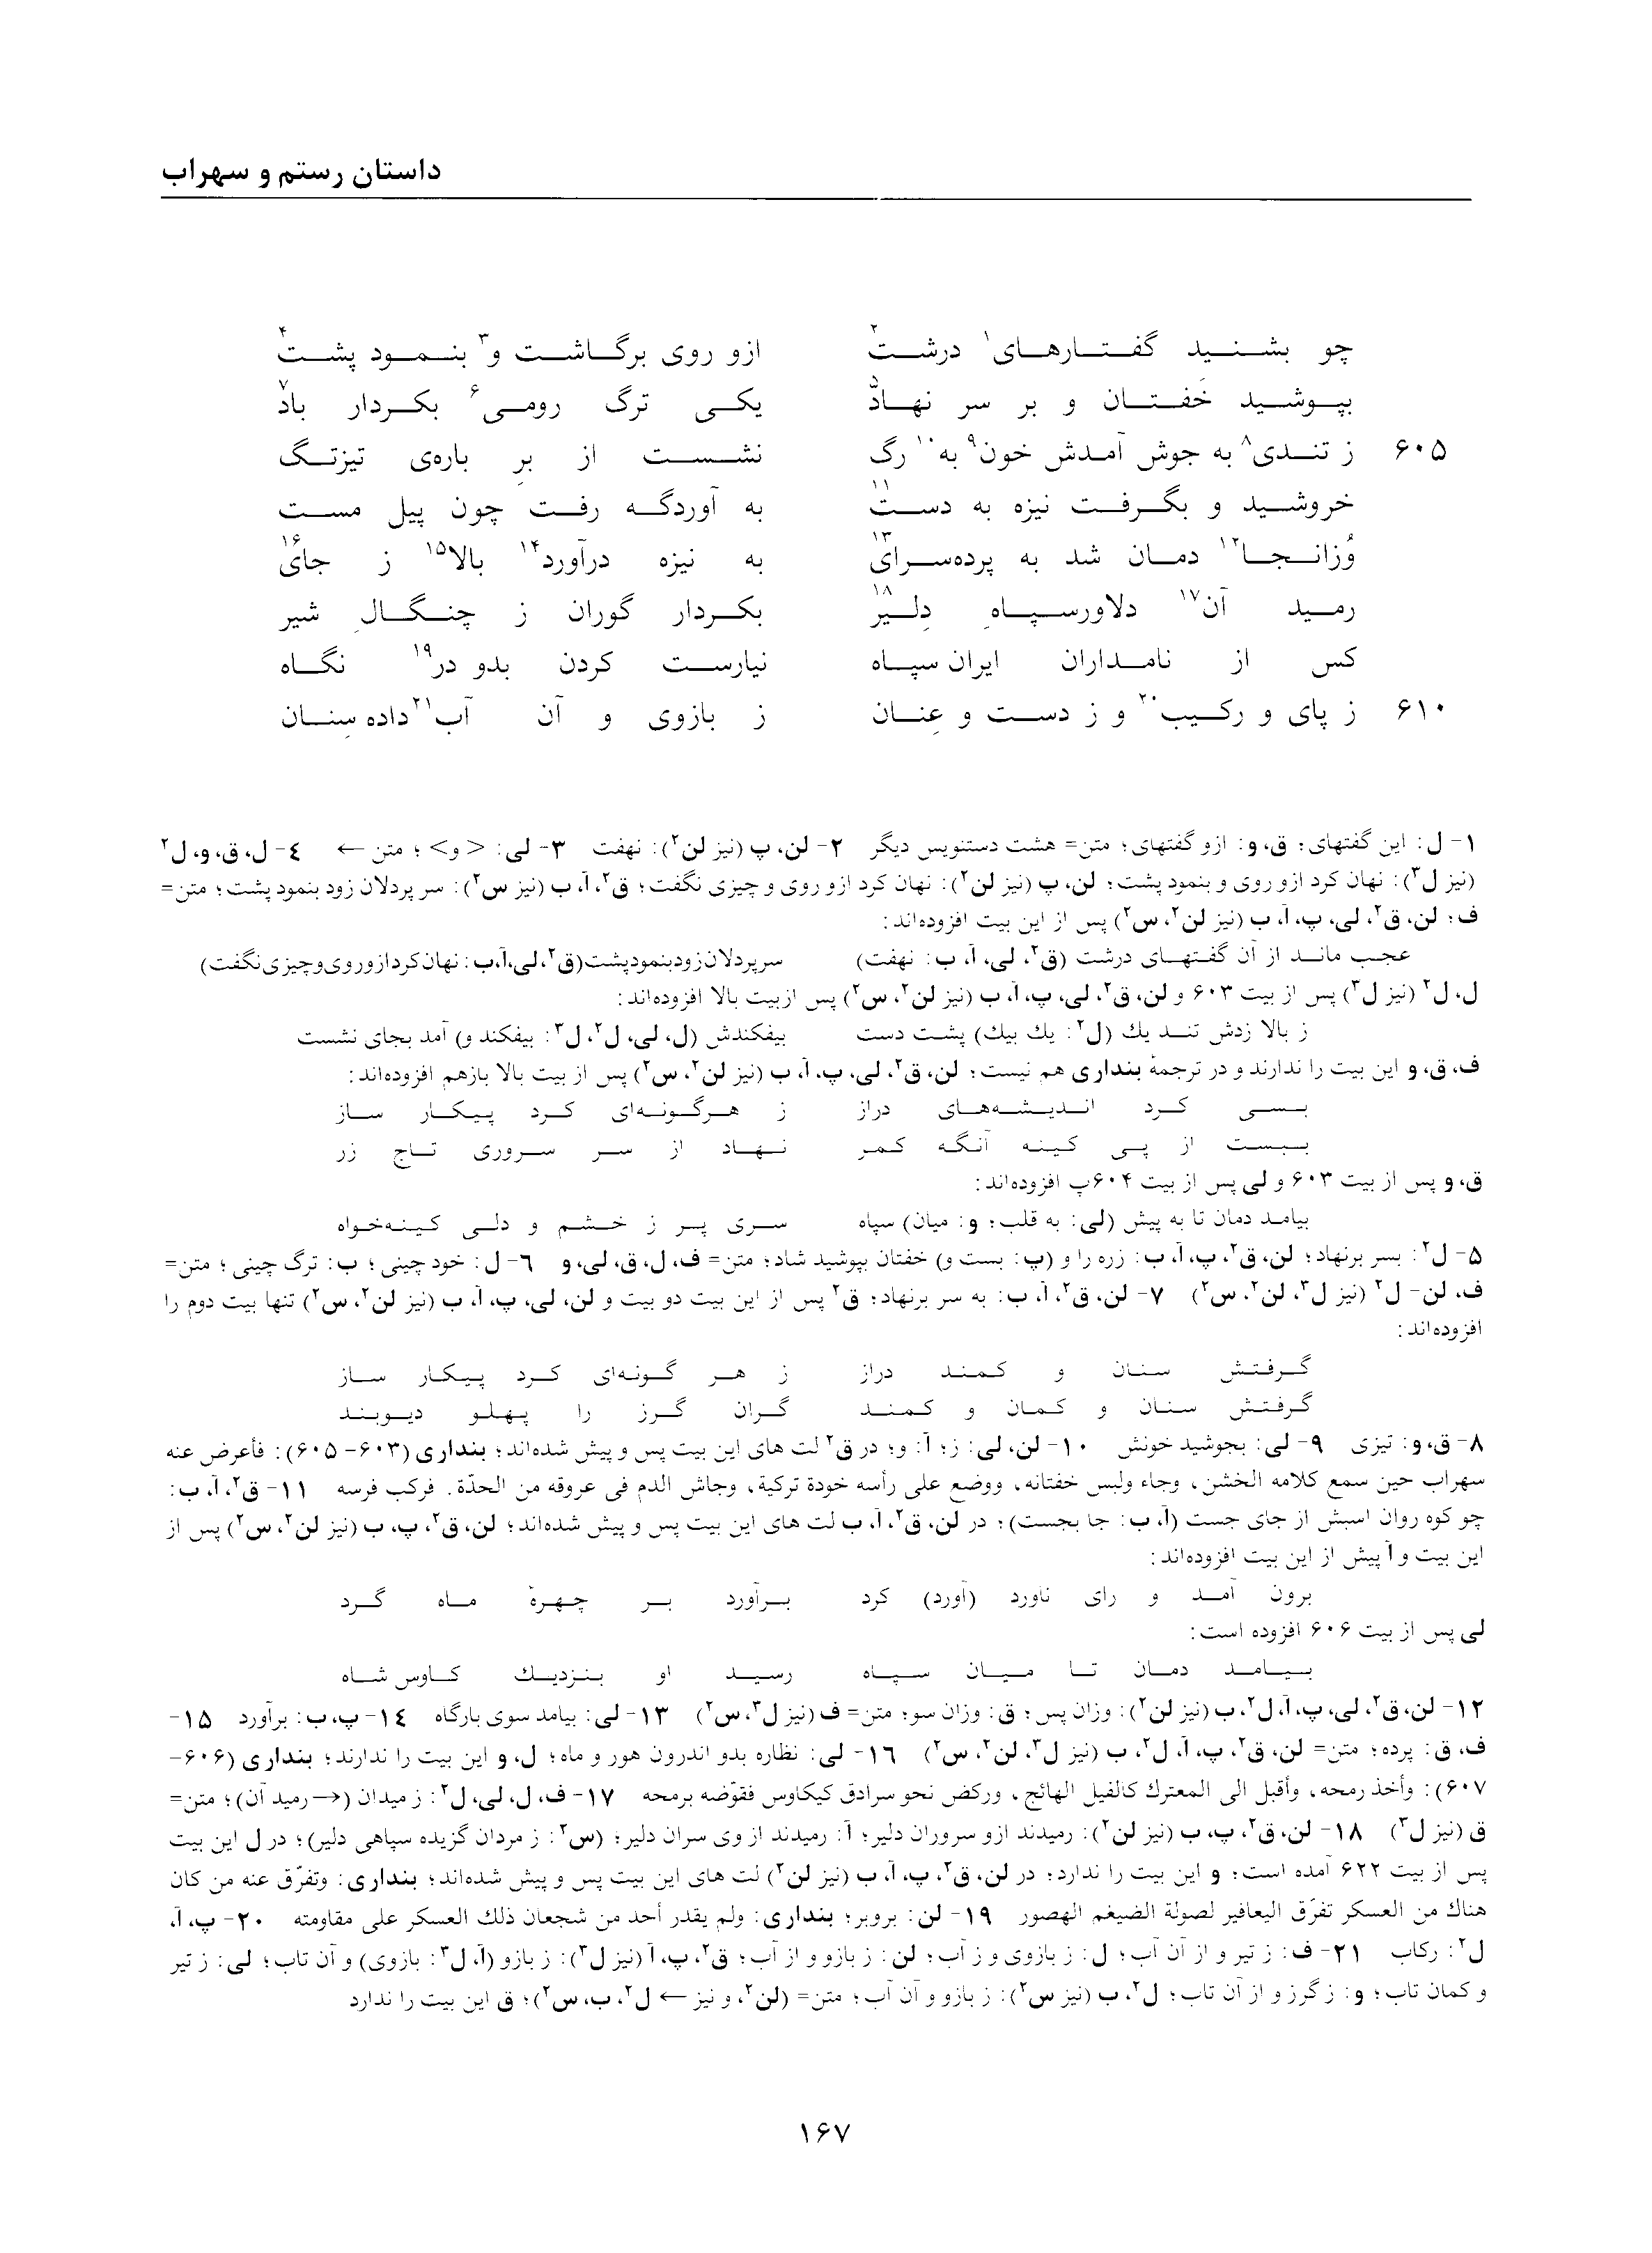 داستان رستم و سهراب
چو بشنید گفتارهای۱ درشت۲ ازو روی برگاشت و۳ بنمود پشت۴
بپوشید خَفتان و بر سر نهاد۵ یکی ترگ رومی۶ بکردار باد۷
۶۰۵ ز تندی۸ به جوش آمدش خون۹ به۱۰ رگ نشست از برِ باره‌ی تیزتگ
خروشید و بگرفت نیزه به دست۱۱ به آوردگه رفت چون پیل مست
وُزانجا۱۲ دمان شد به پرده‌سرای۱۳ به نیزه درآورد۱۴ بالا۱۵ ز جای۱۶
رمید آن۱۷ دلاورسپاهِ دِلیر۱۸ بکردار گوران ز چنگالِ شیر
کس از نامداران ایران سپاه نیارست کردن بدو در۱۹ نگاه
۶۱۰ ز پای و رکیب۲۰ و ز دست و عِنان ز بازوی و آن آب۲۱ داده سِنان
۱- ل: این گفتهای؛ ق، و: ازو گفتهای؛ متن= هشت دستنویس دیگر ۲- لن، پ (نیز لن۲): نهفت ۳- لی: < و> ؛ متن ← ۴- ل، ق، و، ل۲
(نیز ل۳): نهان کرد ازو روی و بنمود پشت؛ لن، پ (نیز لن۲): نهان کرد ازو روی و چیزی نگفت؛ ق۲، آ، ب (نیز س۲): سر پردلان زود بنمود پشت؛ متن=
ف؛ لن، ق۲، لی، پ، آ، ب (نیز لن۲، س۲) پس از این بیت افزوده‌اند:
عجب ماند از آن گفتهای درشت (ق۲، لی، آ، ب: نهفت) سر پردلان زود بنمود پشت (ق۲، لی، آ، ب: نهان کرد ازو روی و چیزی نگفت)
ل، ل۲ (نیز ل۳) پس از بیت ۶۰۳ و لن، ق۲، لی، پ، آ، ب (نیز لن۲، س۲) پس از بیت بالا افزوده‌اند:
ز بالا زدش تند یك (ل۲: یك بیك) پشت دست بیفکندش (ل، لی، ل۲، ل۳: بیفکند و) آمد بجای نشست
ف، ق، و این بیت را ندارند و در ترجمهٔ بنداری هم نیست؛ لن، ق۲، لی، پ، آ، ب (نیز لن۲، س۲) پس از بیت بالا بازهم افزوده‌اند:
بسی کرد اندیشه‌های دراز ز هرگونه‌ای کرد پیکار ساز
ببست از پی کینه آنگه کمر نهاد از سر سروری تاج زر
ق، و پس از بیت ۶۰۳ و لی پس از بیت ۶۰۴پ افزوده‌اند:
بیامد دمان تا به پیش (لی: به قلب؛ و: میان) سپاه سری پر ز خشم و دلی کینه‌خواه
۵- ل۲: بسر برنهاد؛ لن، ق۲، پ، آ، ب: زره را و (پ: بست و) خفتان بپوشید شاد؛ متن= ف، ل، ق، لی، و ۶- ل: خود چینی؛ ب: ترگ چینی؛ متن=
ف، لن- ل۲ (نیز ل۳، لن۲، س۲) ۷- لن، ق۲، آ، ب: به سر برنهاد؛ ق۲ پس از این بیت دو بیت و لن، لی، پ، آ، ب (نیز لن۲، س۲) تنها بیت دوم را
افزوده‌اند:
گرفتش سنان و کمند دراز ز هر گونه‌ای کرد پیکار ساز
گرفتش سنان و کمان و کمند گران گرز را پهلو دیوبند
۸- ق، و: تیزی ۹- لی: بجوشید خونش ۱۰- لن، لی: ز؛ آ: و؛ در ق۲ لت های این بیت پس و پیش شده‌اند؛ بنداری (۶۰۳-۶۰۵): فأعرض عنه
سهراب حین سمع کلامه الخشن، وجاء ولبس خفتانه، ووضع علی رأسه خودة ترکیة، وجاش الدم فی عروقه من الحدّة. فرکب فرسه ۱۱- ق۲، آ، ب:
چو کوه روان اسبش از جای جست (آ، ب: جا بجست)؛ در لن، ق۲، آ، ب لت های این بیت پس و پیش شده‌اند؛ لن، ق۲، پ، ب (نیز لن۲، س۲) پس از
این بیت و آ پیش از این بیت افزوده‌اند:
برون آمد و رای ناورد (آورد) کرد برآورد بر چهرهٔ ماه گرد
لی پس از بیت ۶۰۶ افزوده است:
بیامد دمان تا میان سپاه رسید او بنزدیك کاوس شاه
۱۲- لن، ق۲، لی، پ، آ، ل۲، ب (نیز لن۲): وزان پس؛ ق: وزان سو؛ متن= ف (نیز ل۳، س۲) ۱۳- لی: بیامد سوی بارگاه ۱۴- پ، ب: برآورد ۱۵-
ف، ق: پرده؛ متن= لن، ق۲، پ، آ، ل۲، ب (نیز ل۳، لن۲، س۲) ۱۶- لی: نظاره بدو اندرون هور و ماه؛ ل، و این بیت را ندارند؛ بنداری (۶۰۶-
۶۰۷): وأخذ رمحه، وأقبل الی المعترك کالفیل الهائج، ورکض نحو سرادق کیکاوس فقوّضه برمحه ۱۷- ف، ل، لی، ل۲: ز میدان (→ رمید آن)؛ متن=
ق (نیز ل۳) ۱۸- لن، ق۲، پ، ب (نیز لن۲): رمیدند ازو سروران دلیر؛ آ: رمیدند از وی سران دلیر؛ (س۲: ز مردان گزیده سپاهی دلیر)؛ در ل این بیت
پس از بیت ۶۲۲ آمده است؛ و این بیت را ندارد؛ در لن، ق۲، پ، آ، ب (نیز لن۲) لت های این بیت پس و پیش شده‌اند؛ بنداری: وتفرّق عنه من کان
هناك من العسکر تفرّق الیعافیر لصولة الضیغم الهصور ۱۹- لن: بروبر؛ بنداری: ولم یقدر أحد من شجعان ذلك العسکر علی مقاومته ۲۰- پ، آ،
ل۲: رکاب ۲۱- ف: ز تیر و از آن آب؛ ل: ز بازوی و ز آب؛ لن: ز بازو و از آب؛ ق۲، پ، آ (نیز ل۳): ز بازو (آ، ل۳: بازوی) و آن تاب؛ لی: ز تیر
و کمان تاب؛ و: ز گرز و از آن تاب؛ ل۲، ب (نیز س۲): ز بازو و آن آب؛ متن= (لن۲، و نیز ← ل۲، ب، س۲)؛ ق این بیت را ندارد
۱۶۷